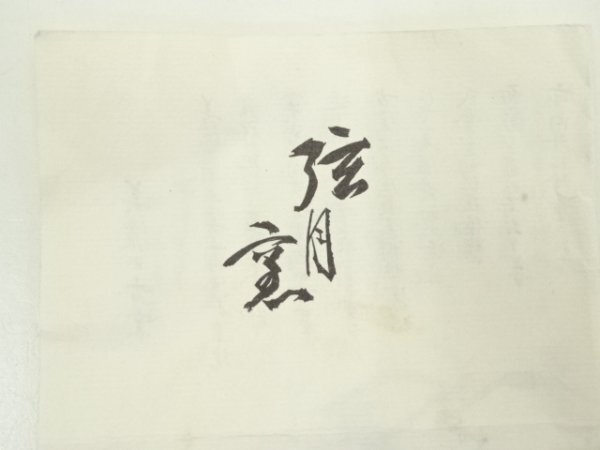 弦月
窯